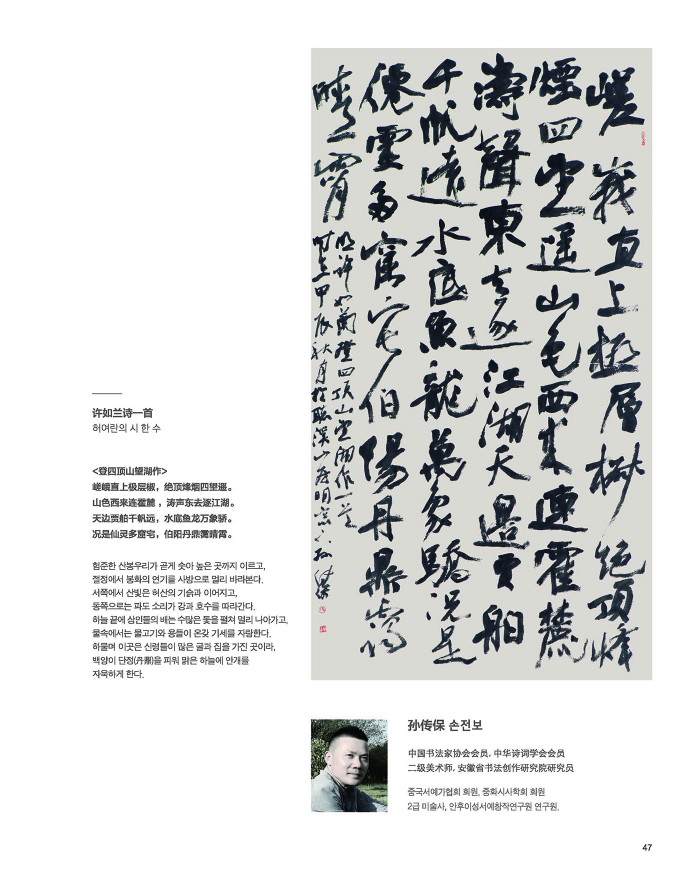 嵯峨直上極層椒絕頂烽
煙四望遙山色西來連霍麓
濤聲東去逐江湖天邊賈舶
千帆遠水底魚龍萬象驕況是
僊靈多窟宅伯陽丹鼎靄
晴霄
明許如蘭登四頂山望湖作一首
甲辰秋月於
许如兰诗一首
허여란의 시 한 수
<登四顶山望湖作>
嵯峨直上极层椒，绝顶烽烟四望遥。
山色西来连霍麓 ，涛声东去逐江湖。
天边贾舶千帆远，水底鱼龙万象骄。
况是仙灵多窟宅，伯阳丹鼎霭晴霄。
험준한 산봉우리가 곧게 솟아 높은 곳까지 이르고,
절정에서 봉화의 연기를 사방으로 멀리 바라본다.
서쪽에서 산빛은 허산의 기슭과 이어지고,
동쪽으로는 파도 소리가 강과 호수를 따라간다.
하늘 끝에 상인들의 배는 수많은 돛을 펼쳐 멀리 나아가고,
물속에서는 물고기와 용들이 온갖 기세를 자랑한다.
하물며 이곳은 신령들이 많은 굴과 집을 가진 곳이라,
백양이 단정(丹鼎)을 피워 맑은 하늘에 안개를
자욱하게 한다.
孙传保 손전보
中国书法家协会会员, 中华诗词学会会员
二级美术师, 安徽省书法创作研究院研究员
중국서예가협회 회원, 중화시사학회 회원
2급 미술사, 안후이성서예창작연구원 연구원.
47